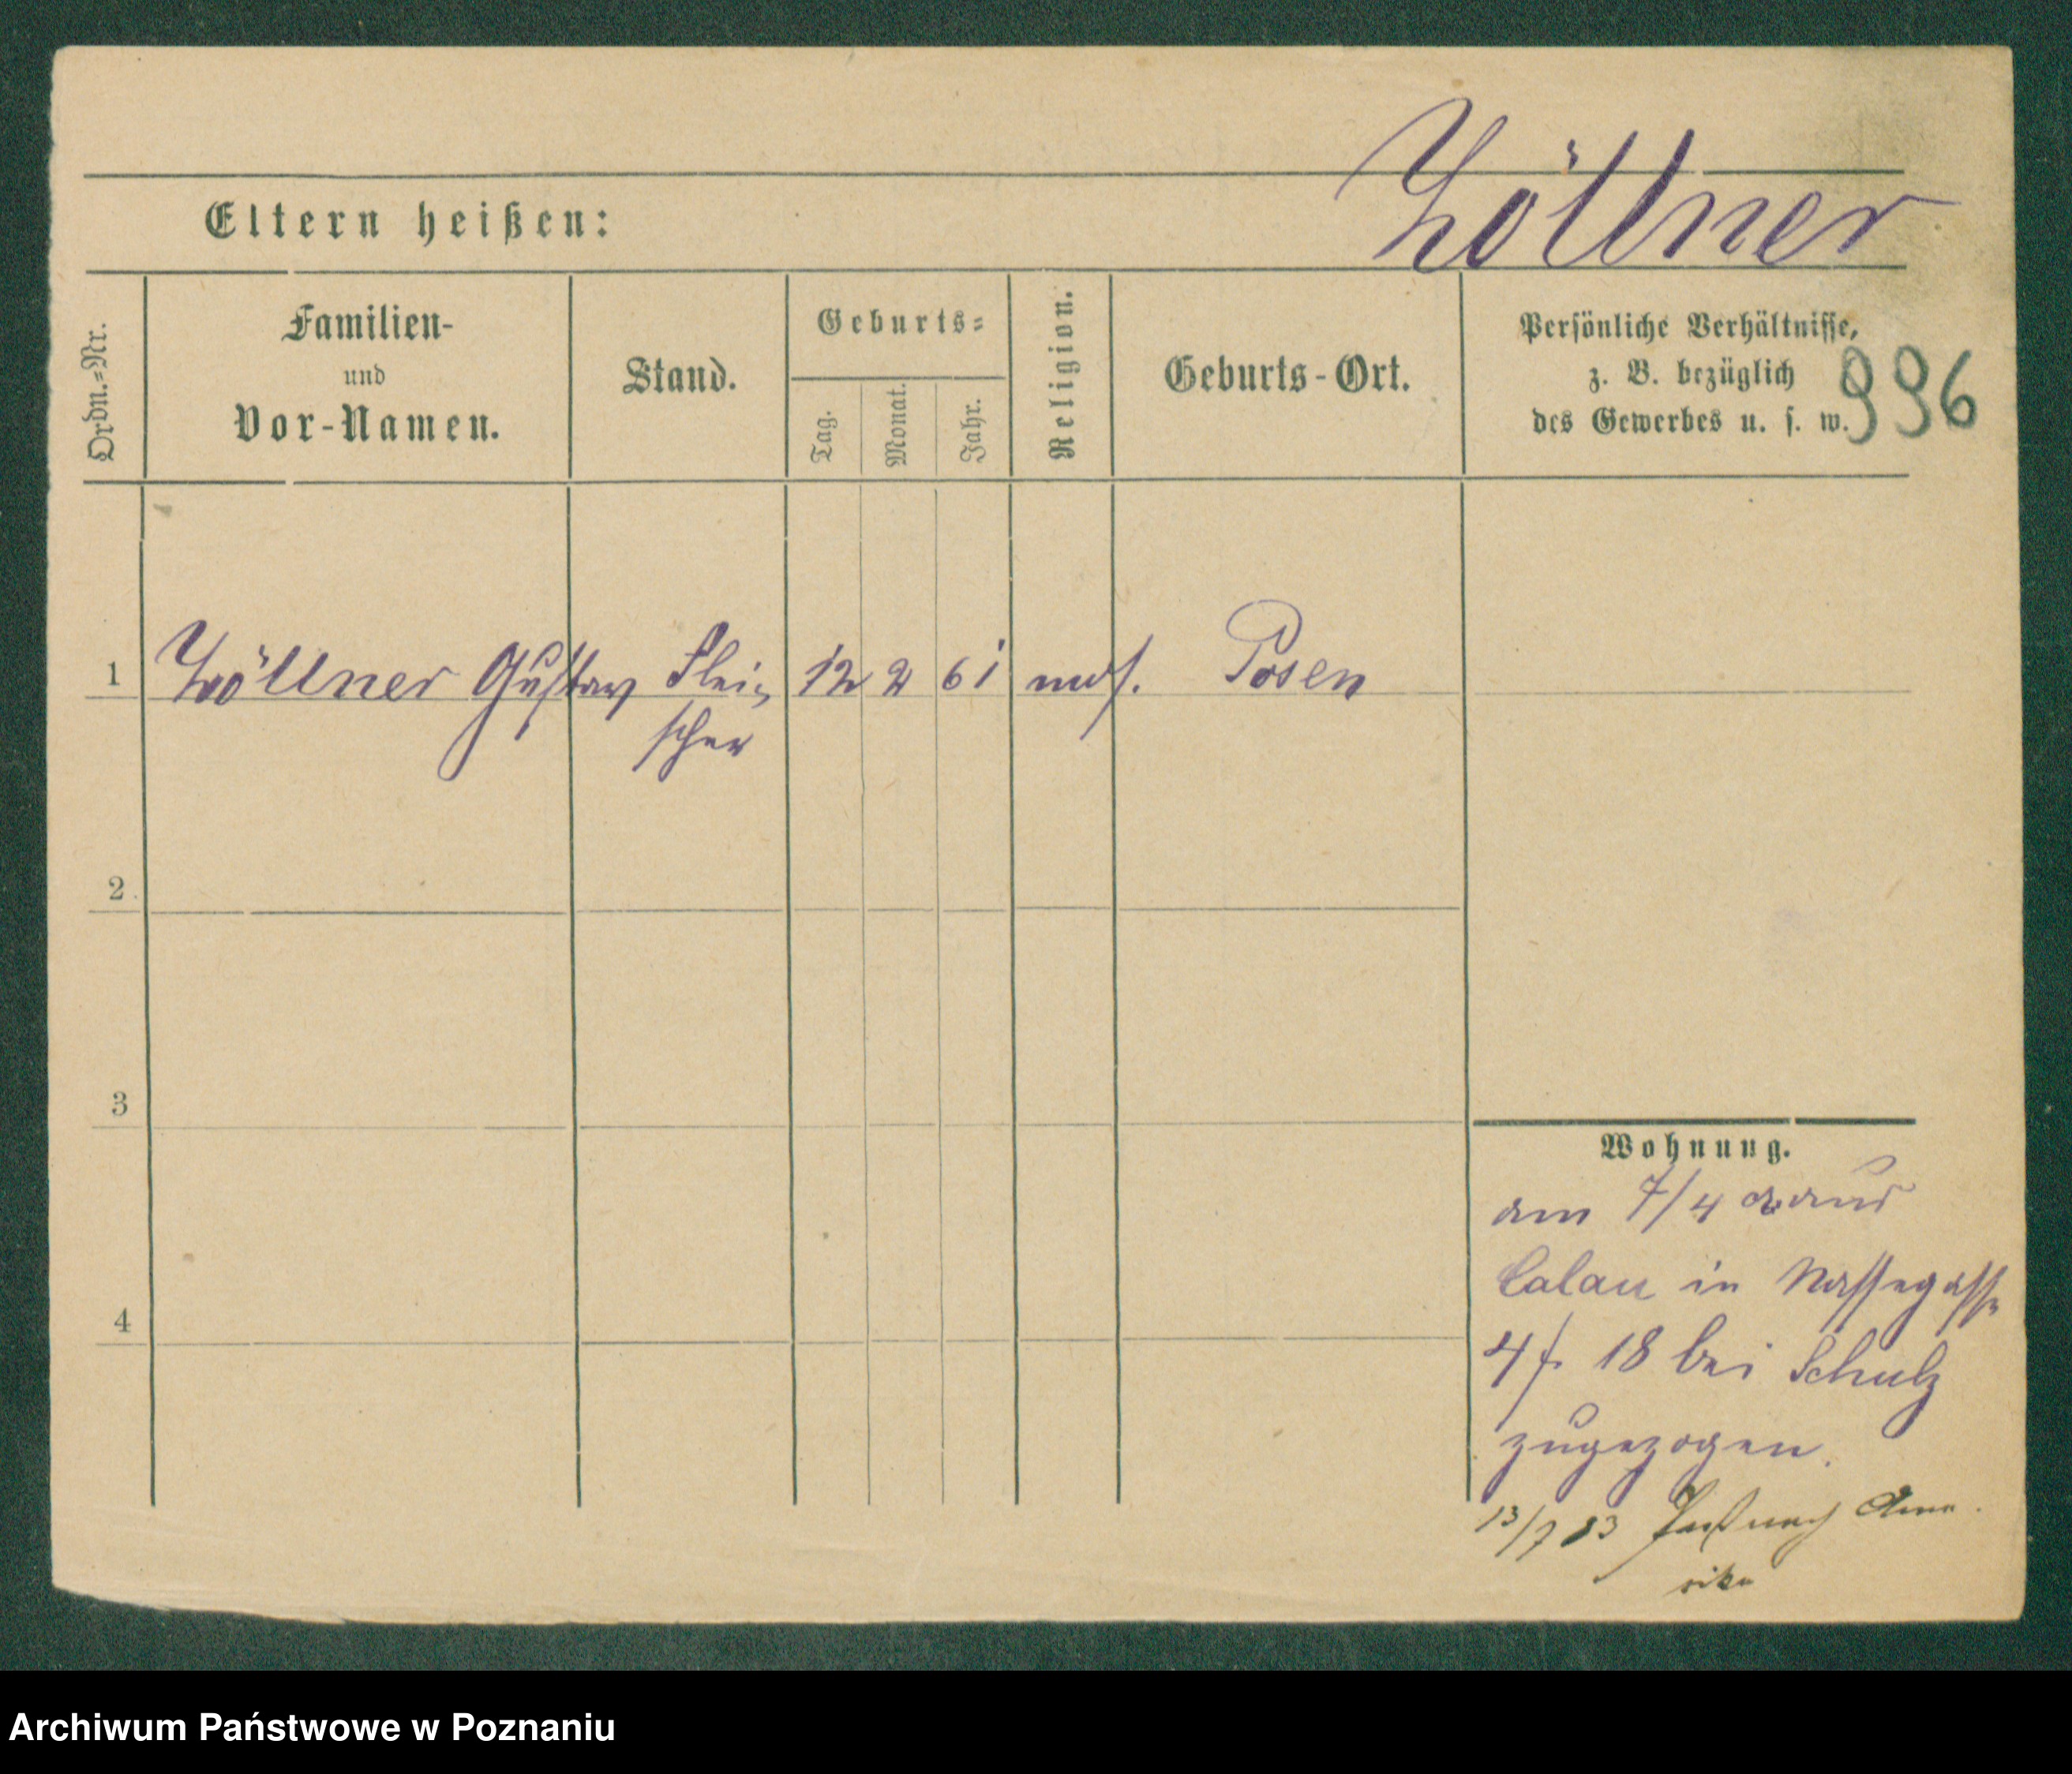 Zöllner
Eltern heißen:
Ordn.=Nr.
Familien-
und
Vor-Namen.
Stand.
Geburts=
Tag.
Monat.
Jahr.
Religion.
Geburts-Ort.
Persönliche Verhältnisse,
z. B. bezüglich
des Gewerbes u. s. w.
996
1 Zöllner Gustav Flei= 12 2 61 Posen
scher
2
3
4
Wohnung.
am 7/4 aus
Calau in Nassegasse
4 f. 18 bei Schulz
zugezogen.
13/7 83 Paß nach Ame
rika
Archiwum Państwowe w Poznaniu